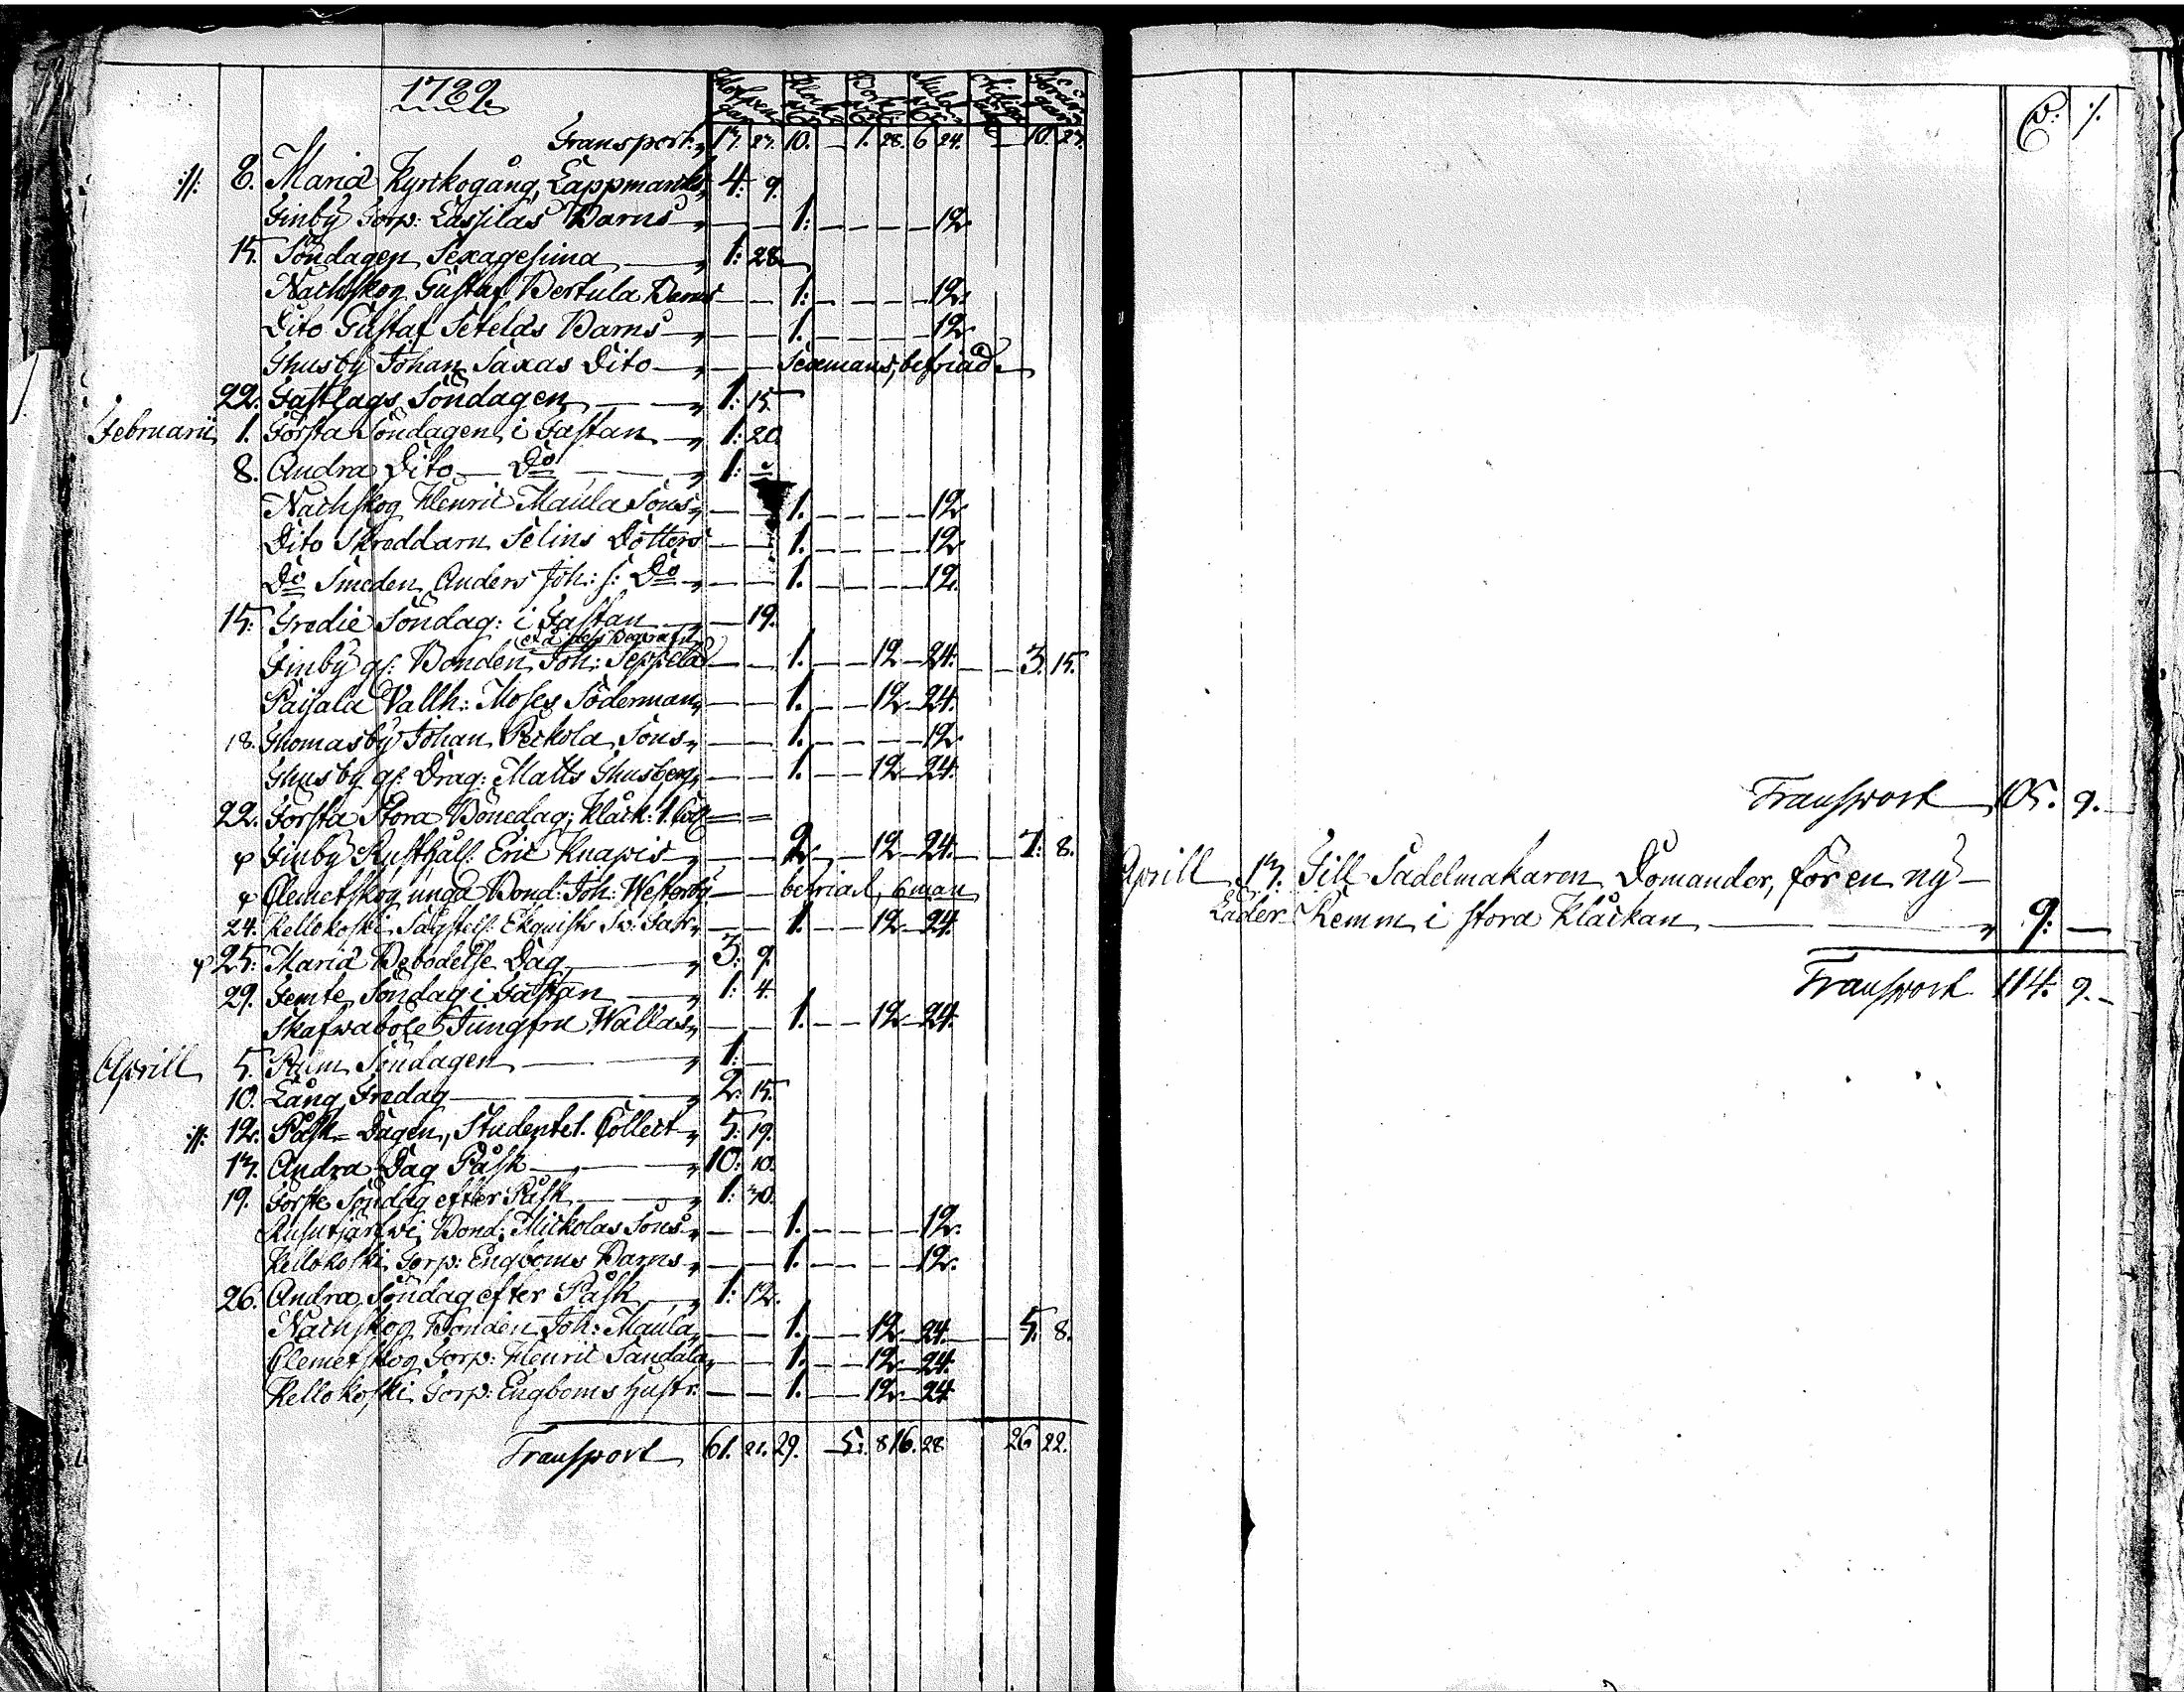 1789.
Transport: 17. 27. 10. — 1. 28. 6 24. — 10. 27.
:/: 8. Mariæ Kyrkogång, Lappmarks 4: 9.
Finby Torp: Lassilas Barns — — 1: — — — — 12.
15. Söndagen Sexagesima — 1: 28.
Nachskog Gustaf Bertula Barns — — 1: — — — — 12.
Dito Gustaf Seteläs Barns — — 1. — — — — 12.
Thusby Johan Saxas Dito — — — Sexmans, befriad.
22. Fastlags Söndagen — — 1: 15.
Februarii 1. Första Söndagen i Fastan — 1: 20.
8. Andra Dito — Do — — 1: —
Nachskog Henric Maula Sons — — 1. — — — — 12.
Dito Skreddarn Selins Dotters — — 1. — — — — 12.
Do Smeden Anders Joh: s: Do — — 1. — — — — 12.
15. Tredie Söndag: i Fastan — — 19.
Finby gl: Bonden Joh: Seppelä — — 1. — — 12 — 24. — — 3. 15.
Paijala Vallh: Moses Söderman — — 1. — — 12 — 24.
18. Thomasby Johan Peckola Sons — — 1. — — — — 12.
Thusby gl: Drag: Matts Thusberg — — 1. — — 12 — 24.
22. Första Stora Bönedag; Klåck:
φ Finby Rusthåll: Eric Knapis — — 2. — — 12 — 24. — — 7: 8.
φ Clemetskog unga Bond: Joh: Westerby — — befriad, 6man
24. Kellokoski Sågställ: Ekquists Sv: Far — — 1. — — 12 — 24.
φ 25. Mariæ Bebådelse Dag — 3. 9.
29. Femte Söndag i Fastan — 1: 4.
Skafwaböle Jungfru Wallas — — 1. — — 12 — 24.
Aprill 5. Palm Söndagen — 1: —
10. Lång Fredag — 2. 15.
:/: 12. Påsk-Dagen, Studentel. Collect 5: 19.
13. Andra Dag Påsk — 10: 10.
19. Förste Söndag efter Påsk — 1: 30.
Rusutjärfvi Bond: Mickolas Sons — — 1. — — — — 12.
Kellokoski Torp: Engboms Barns — — 1. — — — — 12.
26. Andra Söndag efter Påsk — 1: 12.
Nachskog Bonden Joh: Maula — — 1. — — 12 — 24. — — 5. 8.
Clemetskog Torp: Henric Sandala — — 1. — — 12 — 24.
Kellokoski Torp: Engboms hustr: — — 1. — — 12 — 24.
Transport 61. 21. 29. — 5: 8 16. 28 26 22.
Transport 105. 9. —
Aprill 13. Till Sadelmakaren Domander, för en ny
Läder- Remm i stora klåckan — 9: —
Transport 114: 9. —